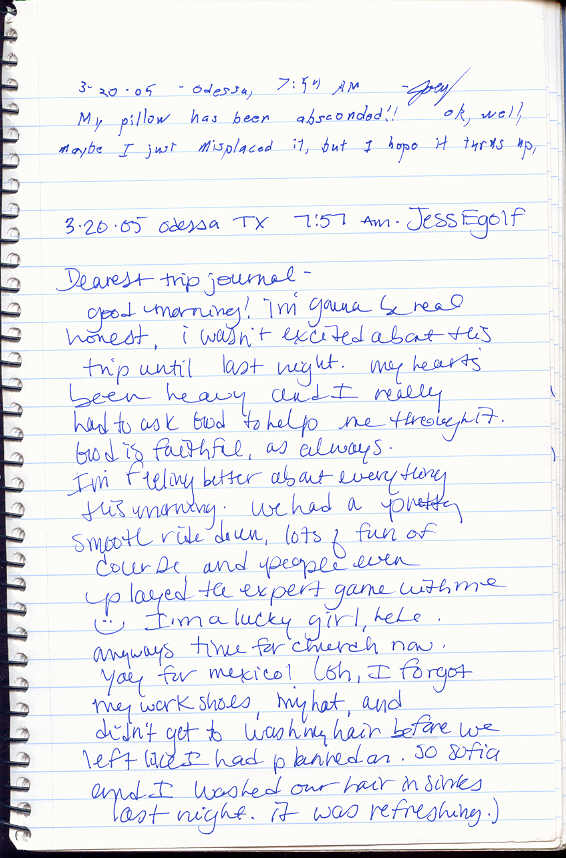 3-20-05 - Odessa, 7:54 AM -Joey
My pillow has been absconded!! ok, well,
maybe I just misplaced it, but I hope it turns up,
3.20.05 Odessa TX 7:57 AM. Jess Egolf
Dearest trip journal -
good morning! i'm gonna be real
honest, i wasn't excited about this
trip until last night. my hearts
been heavy and I really
had to ask God to help me through it.
God is faithful, as always.
I'm feeling better about everything
this morning. we had a pretty
smooth ride down, lots of fun of
course and people even
played the expert game with me
I'm a lucky girl, hehe.
anyways time for church now.
yay for mexico! (oh, I forgot
my work shoes, my hat, and
didn't get to wash my hair before we
left like I had planned on. so sofia
and I washed our hair in sinks
last night. it was refreshing.)